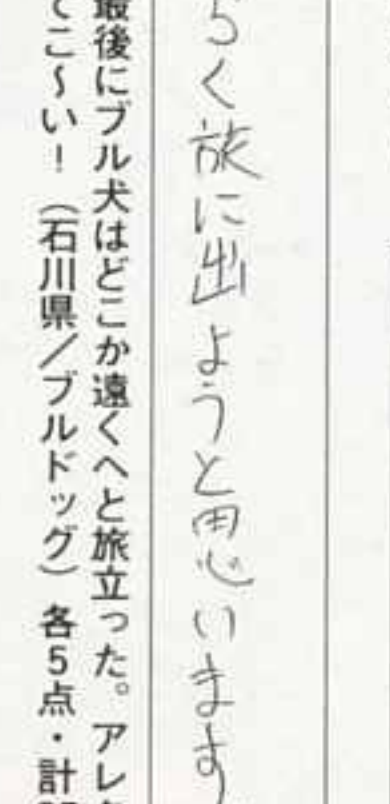 らく旅に出ようと思います
最後にブル犬はどこか遠くへと旅立った。アレ
てこ〜い！（石川県／ブルドッグ）各5点・計